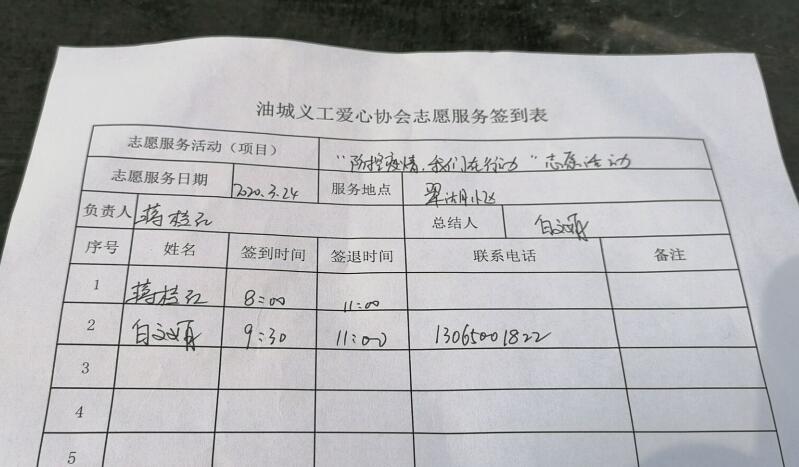 油城义工爱心协会志愿服务签到表
志愿服务活动（项目） “防控疫情，我们在行动”志愿活动
志愿服务日期 2020.3.24 服务地点
负责人 蒋桂红 总结人 白文丽
序号 姓名 签到时间 签退时间 联系电话 备注
1 蒋桂红 8:00 11:00
2 白文丽 9:30 11:00 13065001822
3
4
5